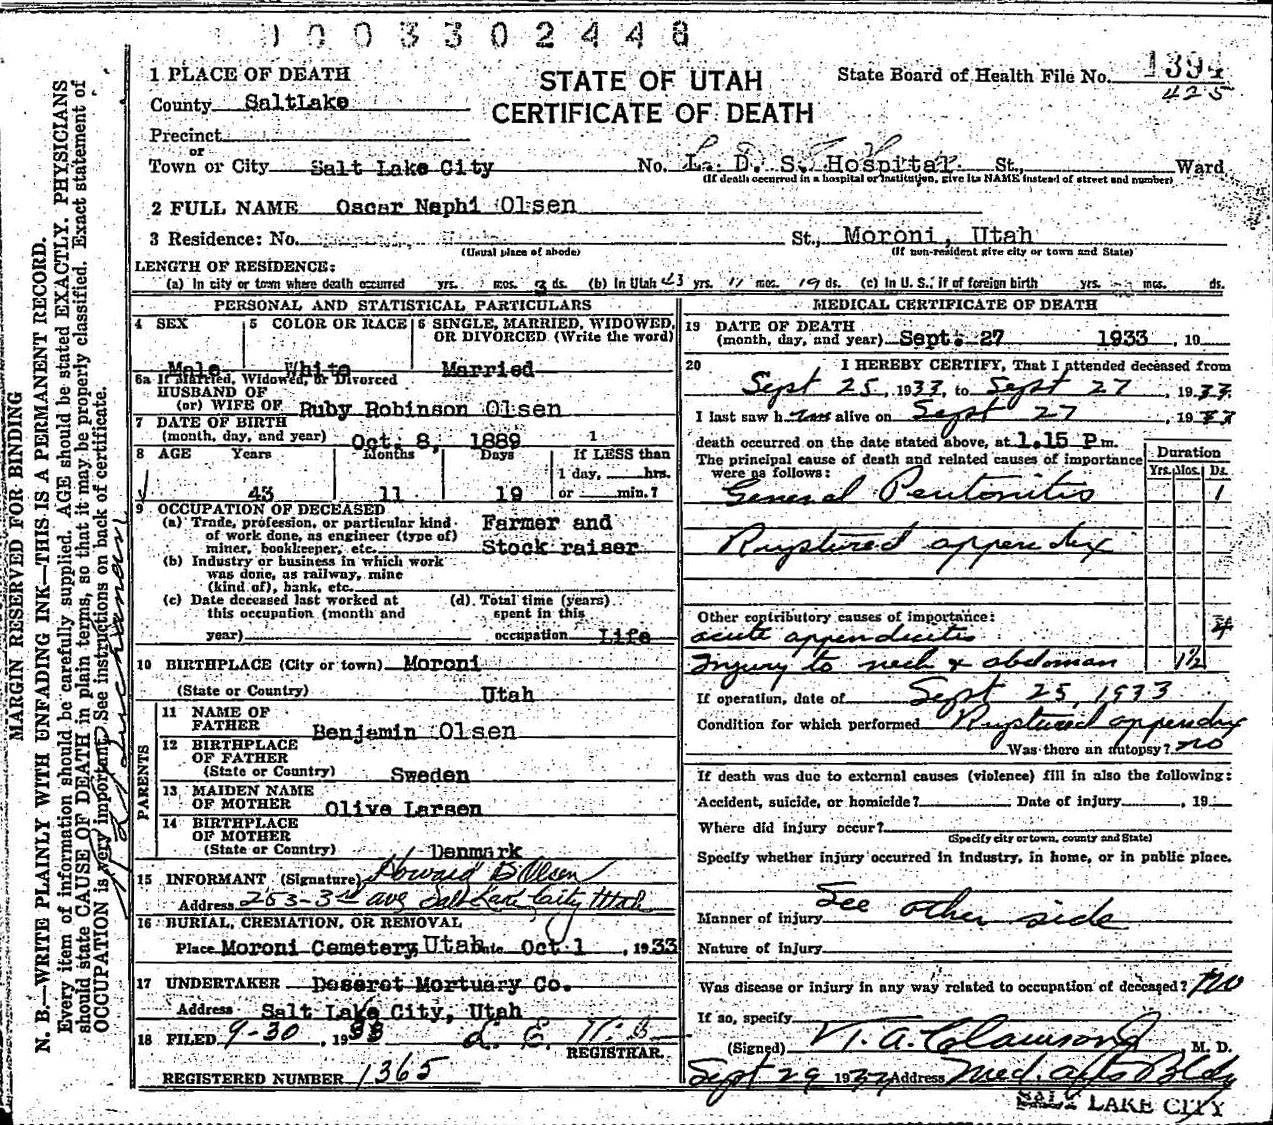 1003302448
1 PLACE OF DEATH
STATE OF UTAH
CERTIFICATE OF DEATH
State Board of Health File No. 1394
425
County SaltLake
Precinct
or
Town or City Salt Lake City No. L. D. S. Hospital St., Ward
(If death occurred in a hospital or institution, give its NAME instead of street and number)
2 FULL NAME Oscar Nephi Olsen
3 Residence: No. St., Moroni, Utah
(Usual place of abode) (If non-resident give city or town and State)
LENGTH OF RESIDENCE:
(a) In city or town where death occurred yrs. mos. 3 ds. (b) In Utah 43 yrs. 11 mos. 19 ds. (c) In U. S., if of foreign birth yrs. mos. ds.
PERSONAL AND STATISTICAL PARTICULARS
4 SEX 5 COLOR OR RACE 6 SINGLE, MARRIED, WIDOWED,
OR DIVORCED (Write the word)
Male White Married
6a If Married, Widowed, or Divorced
HUSBAND OF
(or) WIFE OF Ruby Robinson Olsen
7 DATE OF BIRTH
(month, day, and year) Oct. 8, 1889
8 AGE Years Months Days If LESS than
1 day, hrs.
43 11 19 or min.?
9 OCCUPATION OF DECEASED
(a) Trade, profession, or particular kind
of work done, as engineer (type of)
miner, bookkeeper, etc. Farmer and
Stock raiser
(b) Industry or business in which work
was done, as railway, mine
(kind of), bank, etc.
(c) Date deceased last worked at
this occupation (month and
year)
(d) Total time (years)
spent in this
occupation Life
10 BIRTHPLACE (City or town) Moroni
(State or Country) Utah
PARENTS
11 NAME OF
FATHER Benjamin Olsen
12 BIRTHPLACE
OF FATHER
(State or Country) Sweden
13 MAIDEN NAME
OF MOTHER Olive Larsen
14 BIRTHPLACE
OF MOTHER
(State or Country) Denmark
15 INFORMANT (Signature) Howard B Olsen
Address 253-3rd ave Salt Lake City Utah
16 BURIAL, CREMATION, OR REMOVAL
Place Moroni Cemetery, Utah Date Oct 1, 1933
17 UNDERTAKER Deseret Mortuary Co.
Address Salt Lake City, Utah
18 FILED 9-30, 1933
REGISTRAR.
REGISTERED NUMBER 1365
MEDICAL CERTIFICATE OF DEATH
19 DATE OF DEATH
(month, day, and year) Sept. 27 1933, 19
20 I HEREBY CERTIFY, That I attended deceased from
Sept 25, 1933, to Sept 27, 1933.
I last saw him alive on Sept 27, 1933
death occurred on the date stated above, at 1.15 P m.
The principal cause of death and related causes of importance
were as follows:
Duration
Yrs. Mos. Ds.
General Peritonitis 1
Ruptured appendix
Other contributory causes of importance:
acute appendicitis 4
Injury to neck & abdoman 1½
If operation, date of Sept 25, 1933
Condition for which performed Ruptured appendix
Was there an autopsy? no
If death was due to external causes (violence) fill in also the following:
Accident, suicide, or homicide? Date of injury, 19
Where did injury occur?
(Specify city or town, county and State)
Specify whether injury occurred in industry, in home, or in public place.
See other side
Manner of injury
Nature of injury
Was disease or injury in any way related to occupation of deceased? No
If so, specify
(Signed) T. A. Clawson Jr M. D.
Sept 29 1933 Address Med. Arts Bldg
SALT LAKE CITY
MARGIN RESERVED FOR BINDING
N. B.—WRITE PLAINLY WITH UNFADING INK—THIS IS A PERMANENT RECORD.
Every item of information should be carefully supplied. AGE should be stated EXACTLY. PHYSICIANS
should state CAUSE OF DEATH in plain terms, so that it may be properly classified. Exact statement of
OCCUPATION is very important. See instructions on back of certificate.